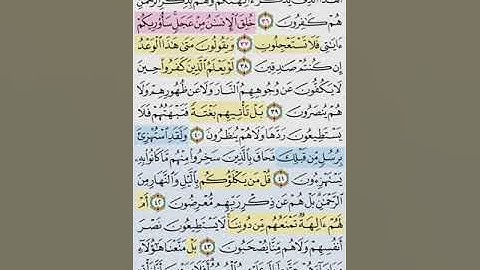 هُمْ كَافِرُونَ ٣٦ خُلِقَ الْإِنسَانُ مِنْ عَجَلٍ سَأُورِيكُمْ
ءَايَاتِي فَلَا تَسْتَعْجِلُونِ ٣٧ وَيَقُولُونَ مَتَى هَٰذَا الْوَعْدُ
إِن كُنتُمْ صَادِقِينَ ٣٨ لَوْ يَعْلَمُ الَّذِينَ كَفَرُوا حِينَ
لَا يَكُفُّونَ عَن وُجُوهِهِمُ النَّارَ وَلَا عَن ظُهُورِهِمْ وَلَا
هُمْ يُنصَرُونَ ٣٩ بَلْ تَأْتِيهِم بَغْتَةً فَتَبْهَتُهُمْ فَلَا
يَسْتَطِيعُونَ رَدَّهَا وَلَا هُمْ يُنظَرُونَ ٤٠ وَلَقَدِ اسْتُهْزِئَ
بِرُسُلٍ مِّن قَبْلِكَ فَحَاقَ بِالَّذِينَ سَخِرُوا مِنْهُم مَّا كَانُوا بِهِ
يَسْتَهْزِءُونَ ٤١ قُلْ مَن يَكْلَؤُكُم بِاللَّيْلِ وَالنَّهَارِ مِنَ
الرَّحْمَٰنِ بَلْ هُمْ عَن ذِكْرِ رَبِّهِم مُّعْرِضُونَ ٤٢ أَمْ
لَهُمْ ءَالِهَةٌ تَمْنَعُهُم مِّن دُونِنَا لَا يَسْتَطِيعُونَ نَصْرَ
أَنفُسِهِمْ وَلَا هُم مِّنَّا يُصْحَبُونَ ٤٣ بَلْ مَتَّعْنَا هَٰؤُلَاءِ